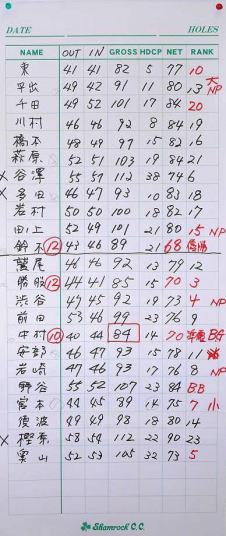 DATE HOLES
NAME OUT IN GROSS HDCP NET RANK
東 41 41 82 5 77 10
平出 49 42 91 11 80 13 大NP
千田 49 52 101 17 84 20
川村 46 46 92 8 84 19
橋本 48 49 97 15 82 16
萩原 52 51 103 19 84 21
× 谷澤 55 57 112 38 74 6
× 多田 46 47 93 10 83 18
岩村 50 50 100 18 82 17
田上 52 49 101 21 80 15 NP
鈴木 12 43 46 89 21 68 優勝
鷲尾 46 46 92 13 79 12
勝股 12 44 41 85 15 70 3
渋谷 47 45 92 19 73 4 NP
前田 53 46 99 23 76 9
中村 10 40 44 84 14 70 準優 BG
安部 46 47 93 15 78 11
岩崎 47 46 93 17 76 8 NP
野谷 55 52 107 23 84 BB
宮本 44 45 89 14 75 7 小
波 49 49 98 18 80 14
× 樫原 58 54 112 22 90 23
雲山 52 53 105 32 73 5
Shamrock C.C.